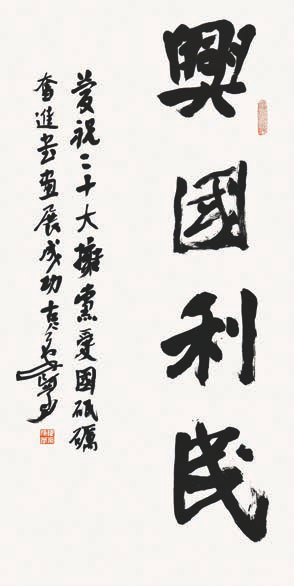 興國利民
慶祝二十大擁黨愛國砥礪
奮進書畫展成功